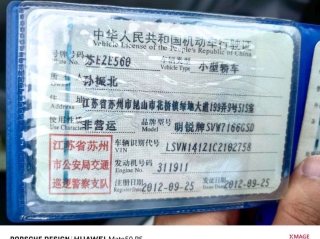 中华人民共和国机动车行驶证
Vehicle License of the People's Republic of China
号牌号码 苏EZE560 车辆类型 小型轿车
Vehicle Type
孙振北
江苏省苏州市昆山市花桥镇绿地大道199弄9号515室
使用性质 非营运 品牌型号 明锐牌SVW7166GSD
Use Character Model
江苏省苏州
市公安局交通
巡逻警察支队
车辆识别代号 LSVN141Z1C2102758
VIN
发动机号码 311911
Engine No.
注册日期 2012-09-25 发证日期 2012-09-25
Register Date Issue Date
XMAGE